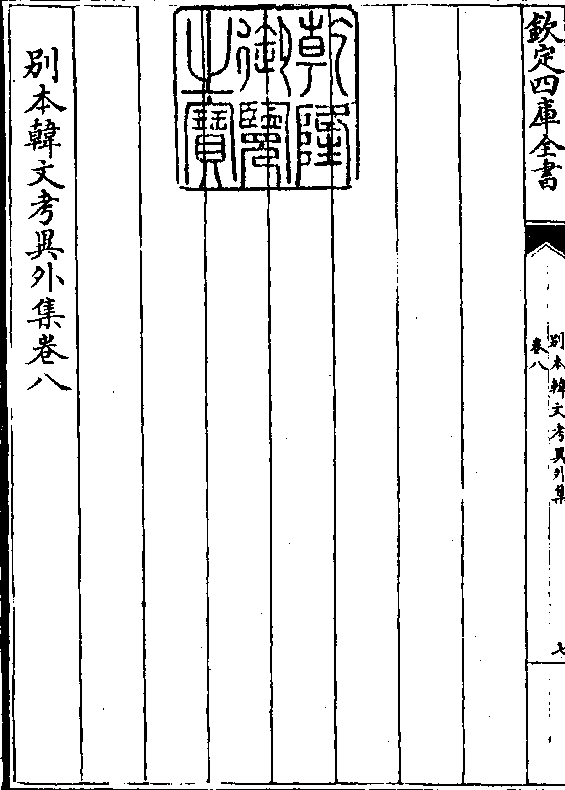 欽定四庫全書
別本韓文考異外集
卷八
七
乾隆
御覽
之寶
別本韓文考異外集卷八